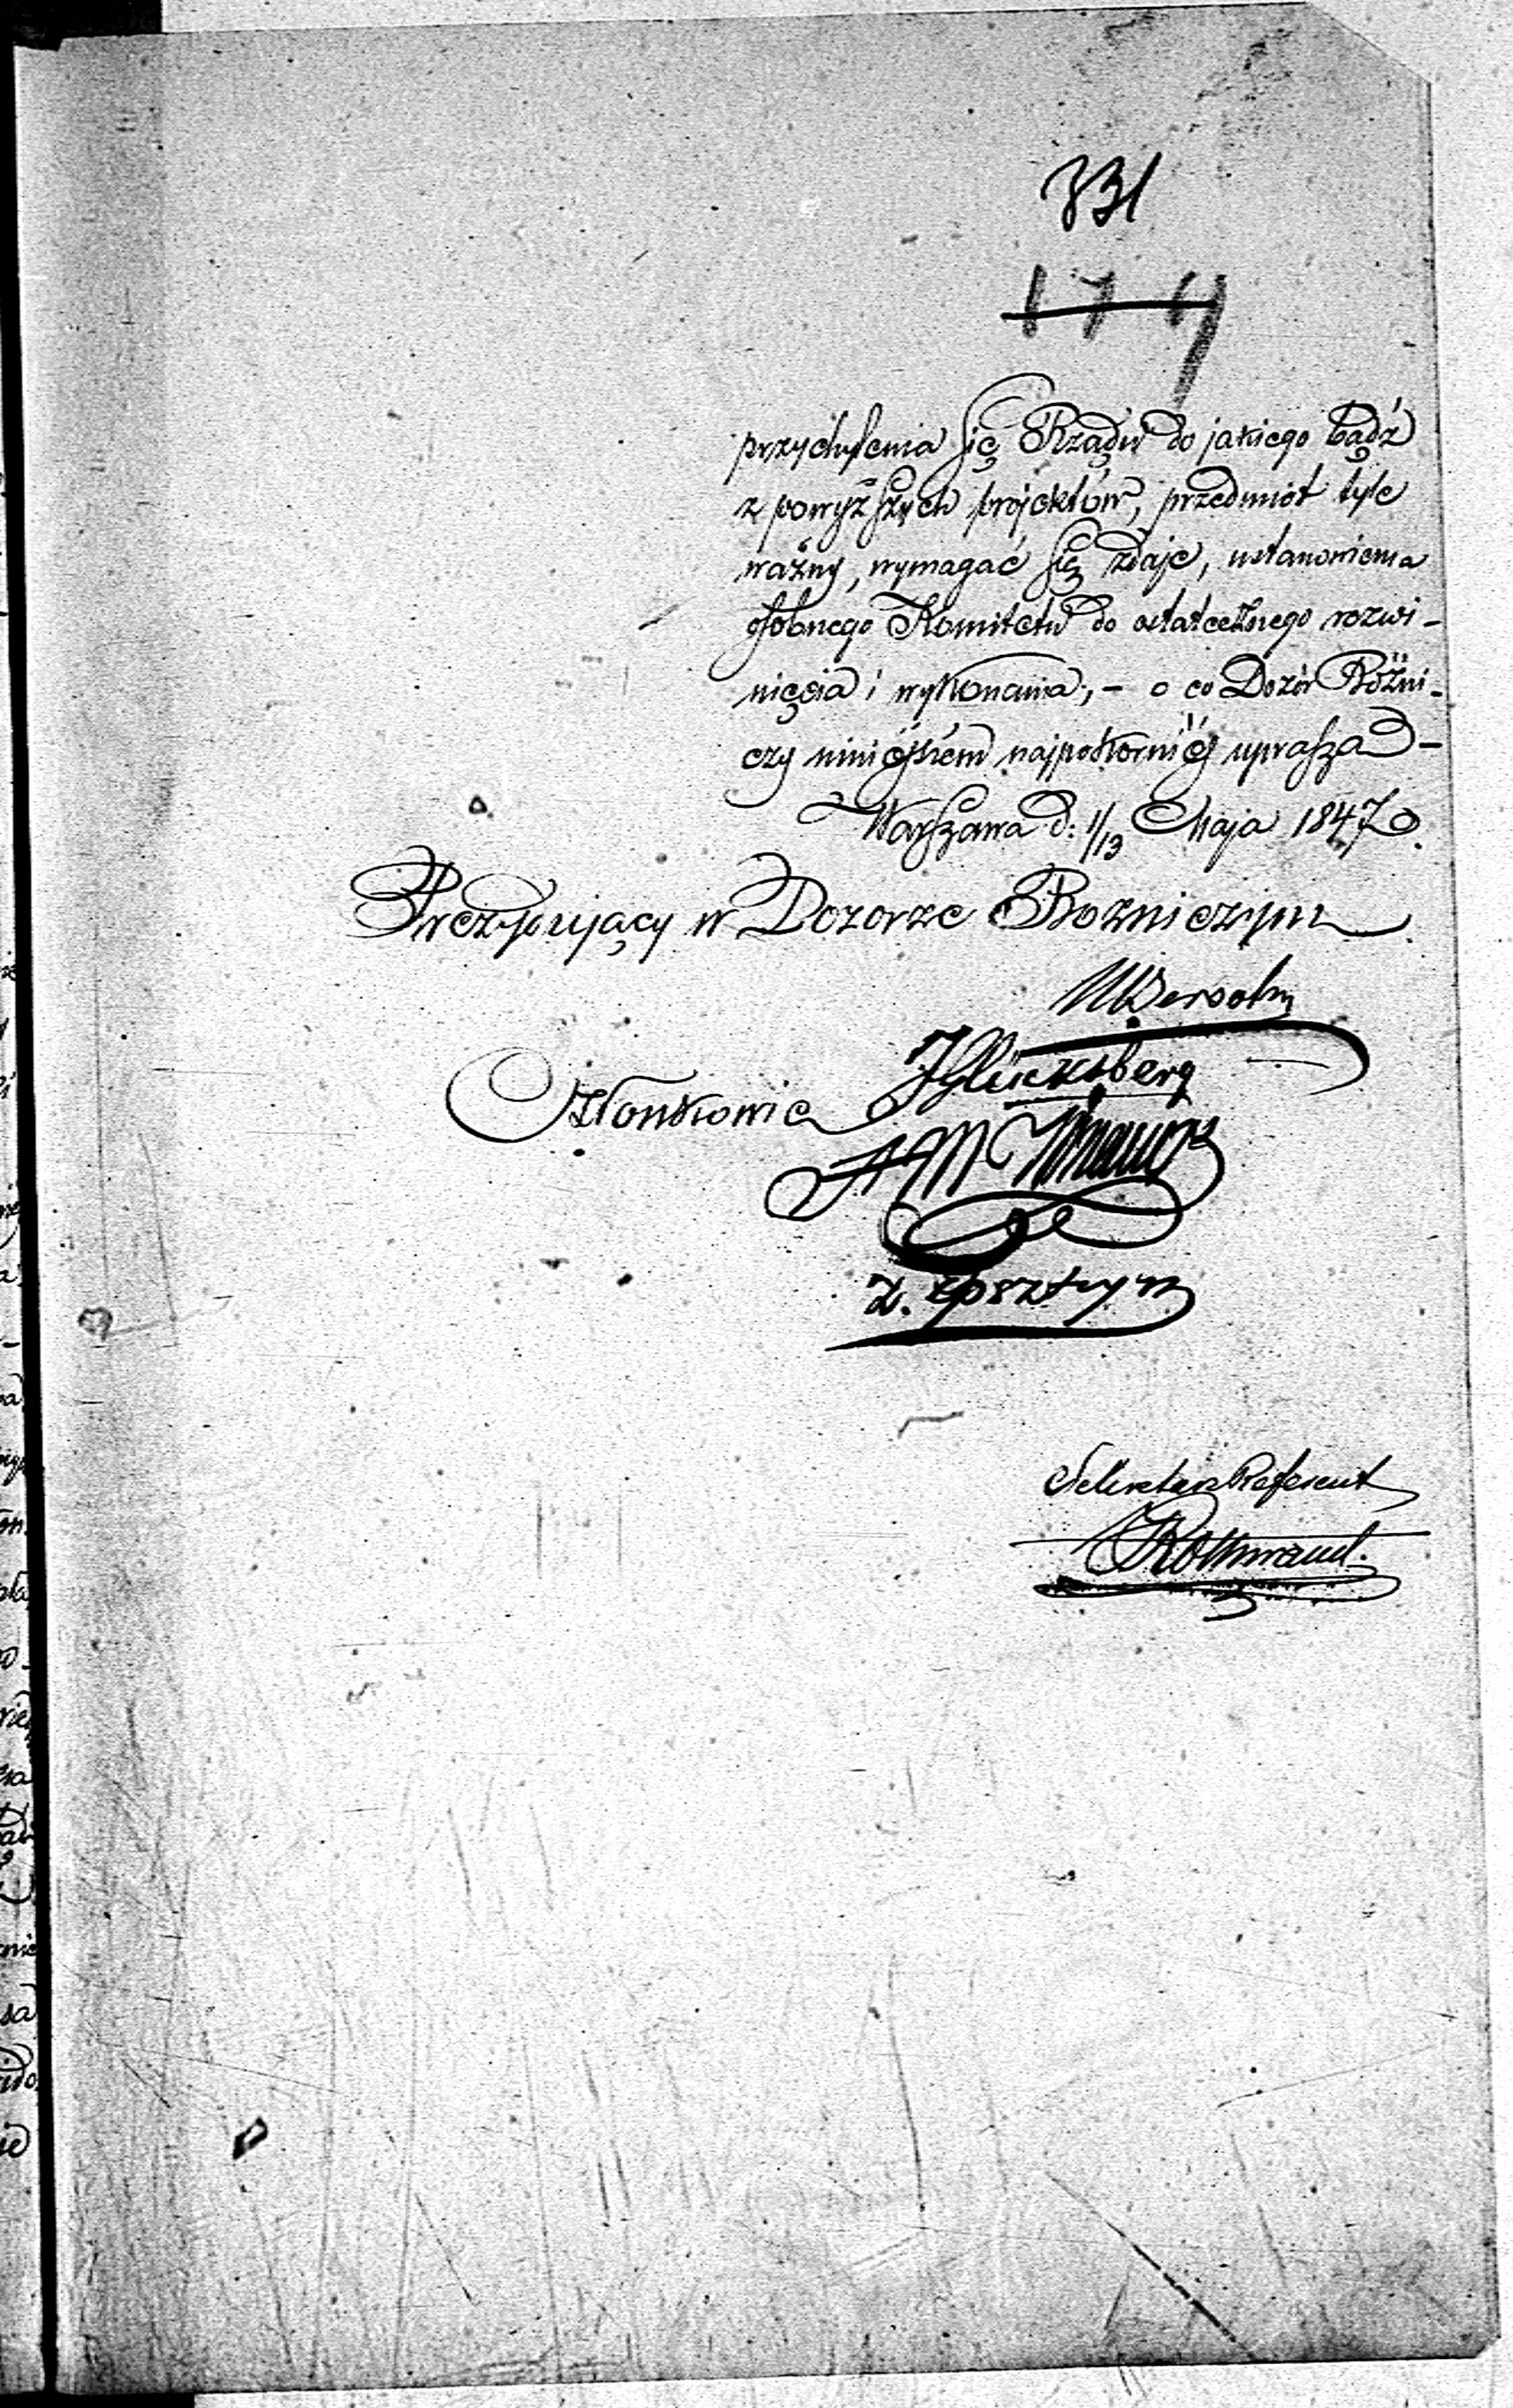 331
174
przychylenia się Rządu do jakiego bądź
z powyższych projektów, przedmiot tyle
ważny, wymagać się zdaje, ustanowienia
osobnego Komitetu do ostatecznego rozwi-
nięcia i wykonania; - o co Dozór Bóżni-
czy niniéjszem najpokorniéj uprasza -
Warszawa d: 1/13 Maja 1847 r.
Prezydujący w Dozorze Bozniczym
M Bersohn
Członkowie JGlücksberg
Z. Epszteyn
Sekretarz Referent
Rothwand.